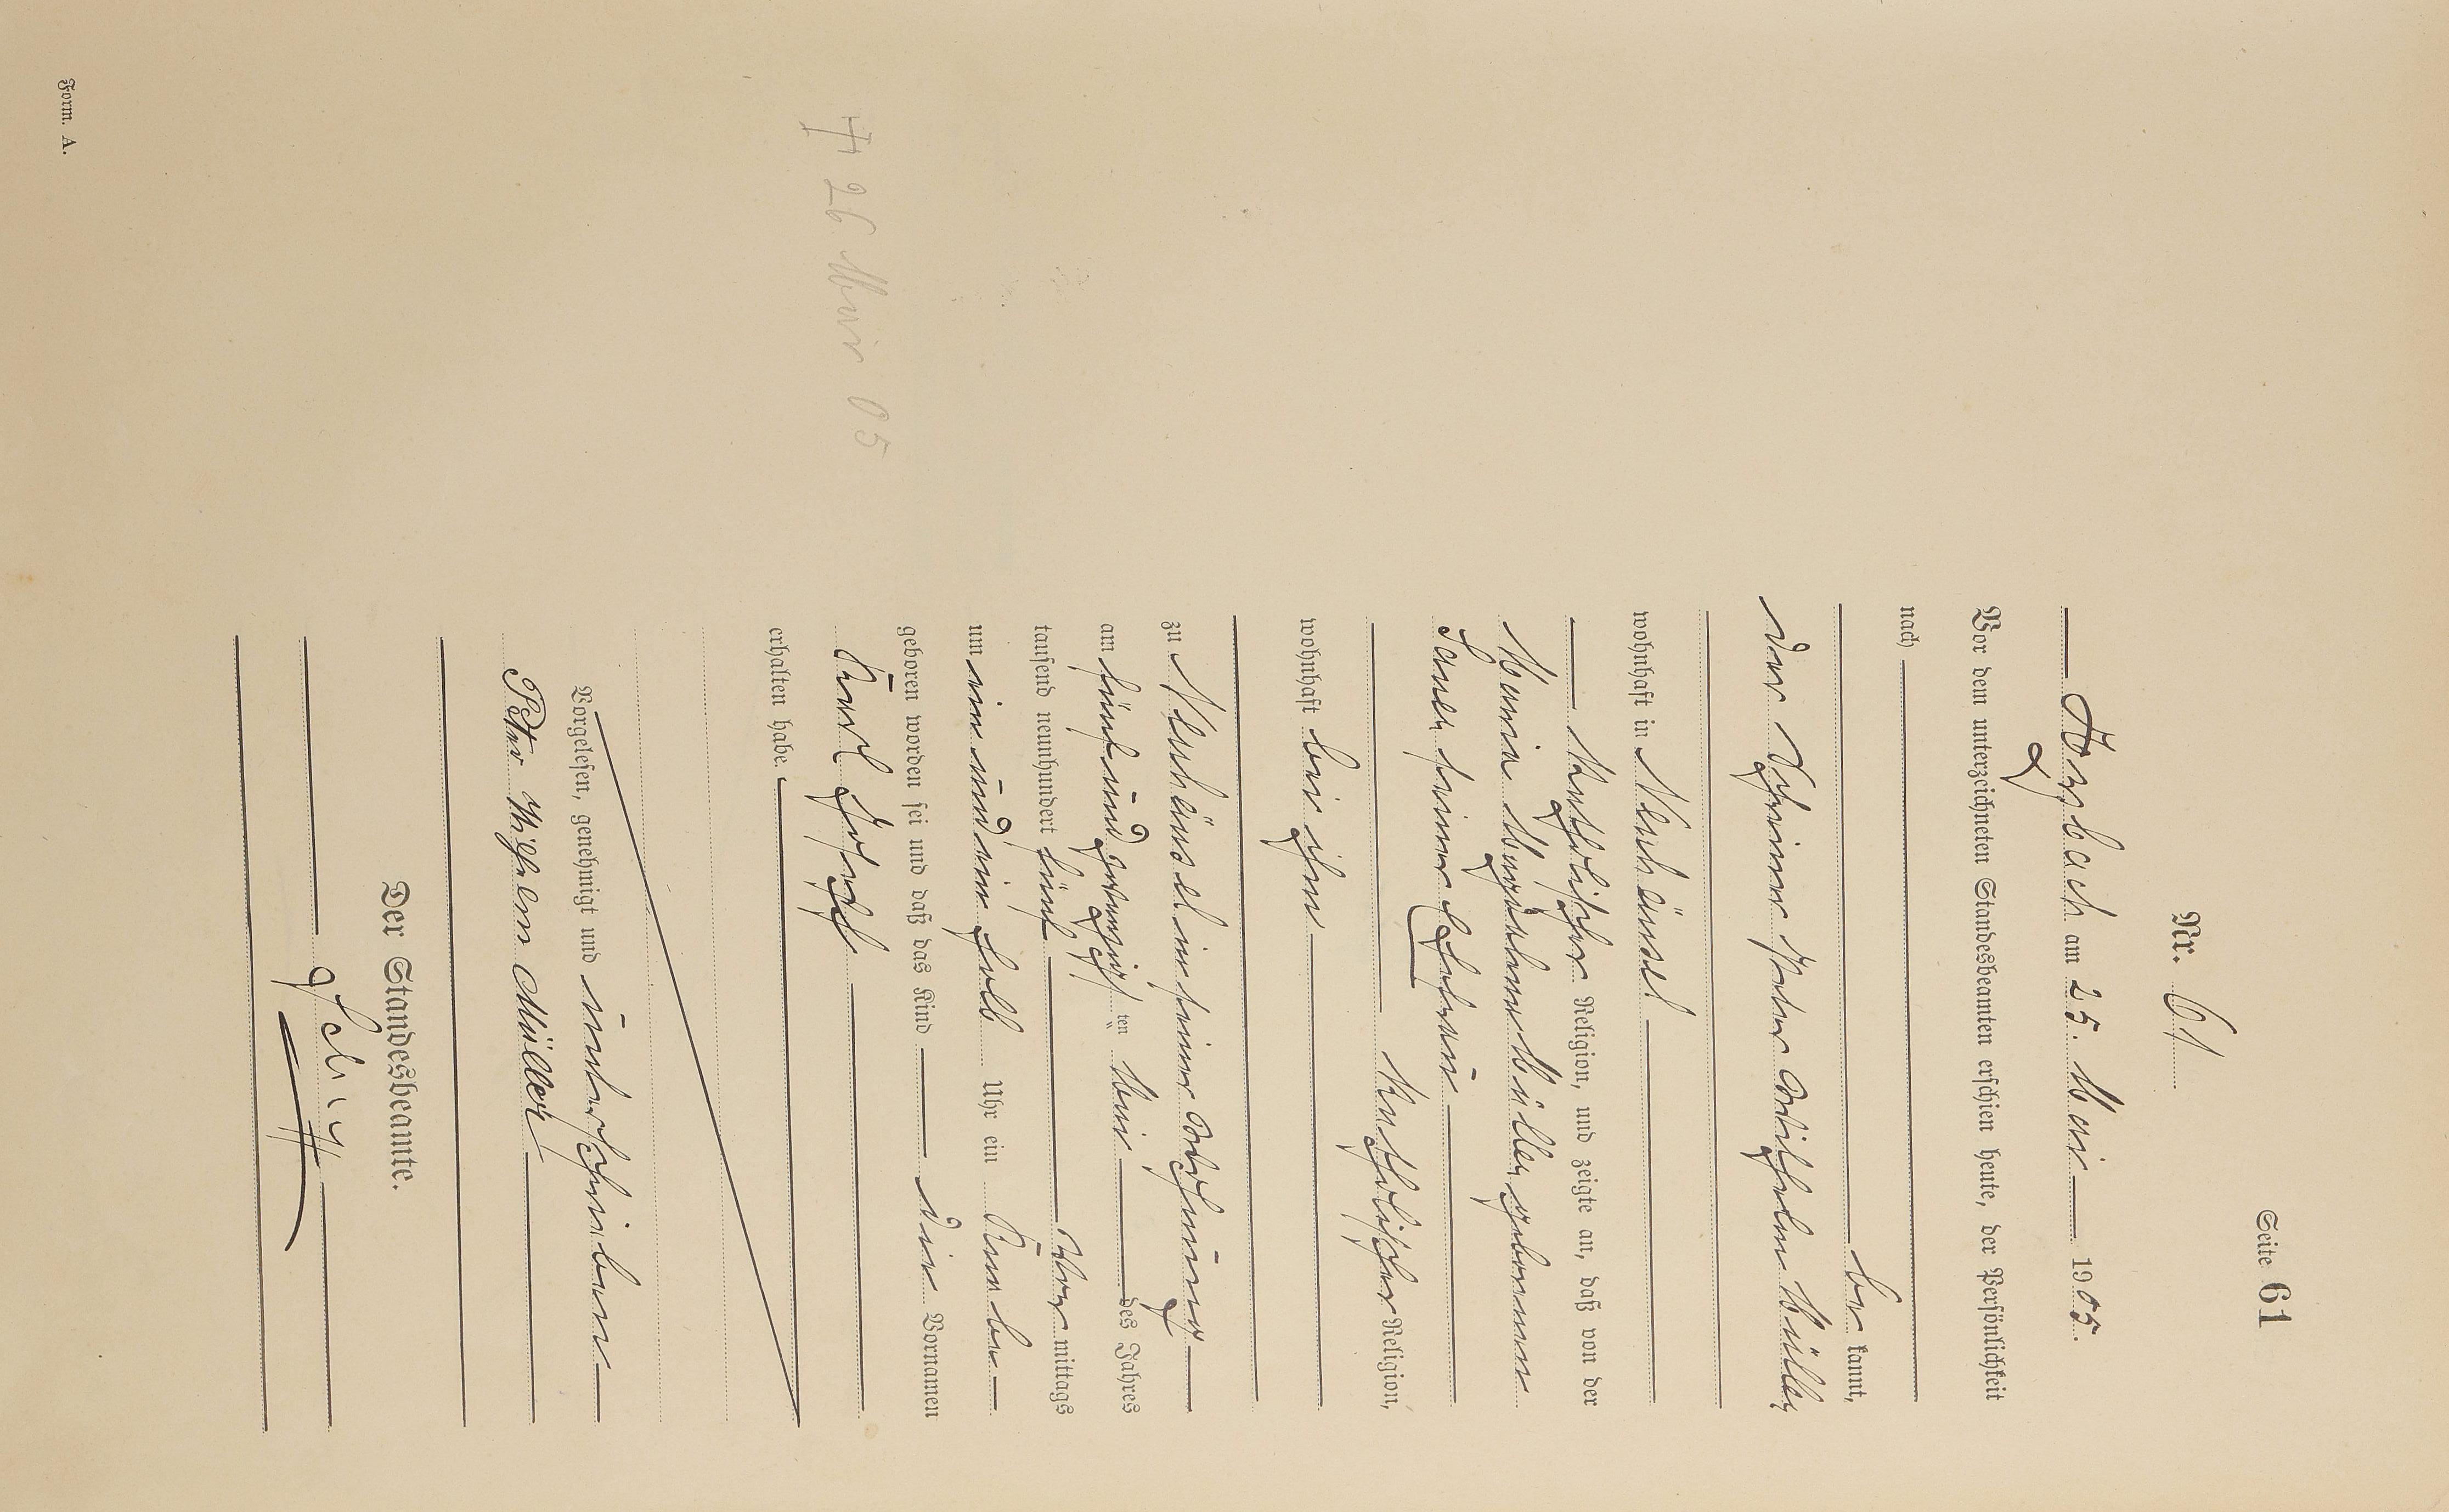 Seite 61
Nr. 61
Arzbach am 25. Mai 1905.
Vor dem unterzeichneten Standesbeamten erschien heute, der Persönlichkeit
nach
be kannt,
der Schreiner Peter Wilhelm Müller
wohnhaft in Neuhäusel
katholischer Religion, und zeigte an, daß von der
Maria Magdalena Müller geborenen
seiner Ehefrau
katholischer Religion,
wohnhaft bei ihm
zu Neuhäusel in seiner Wohnung
am fünfundzwanzigsten Mai des Jahres
tausend neunhundert fünf Vor mittags
um ein und ein halb Uhr ein Knabe
geboren worden sei und daß das Kind die Vornamen
Karl Joseph
erhalten habe.
† 26 Mai 05
Vorgelesen, genehmigt und unterschrieben
Peter Wilhelm Müller
Der Standesbeamte.
Form. A.